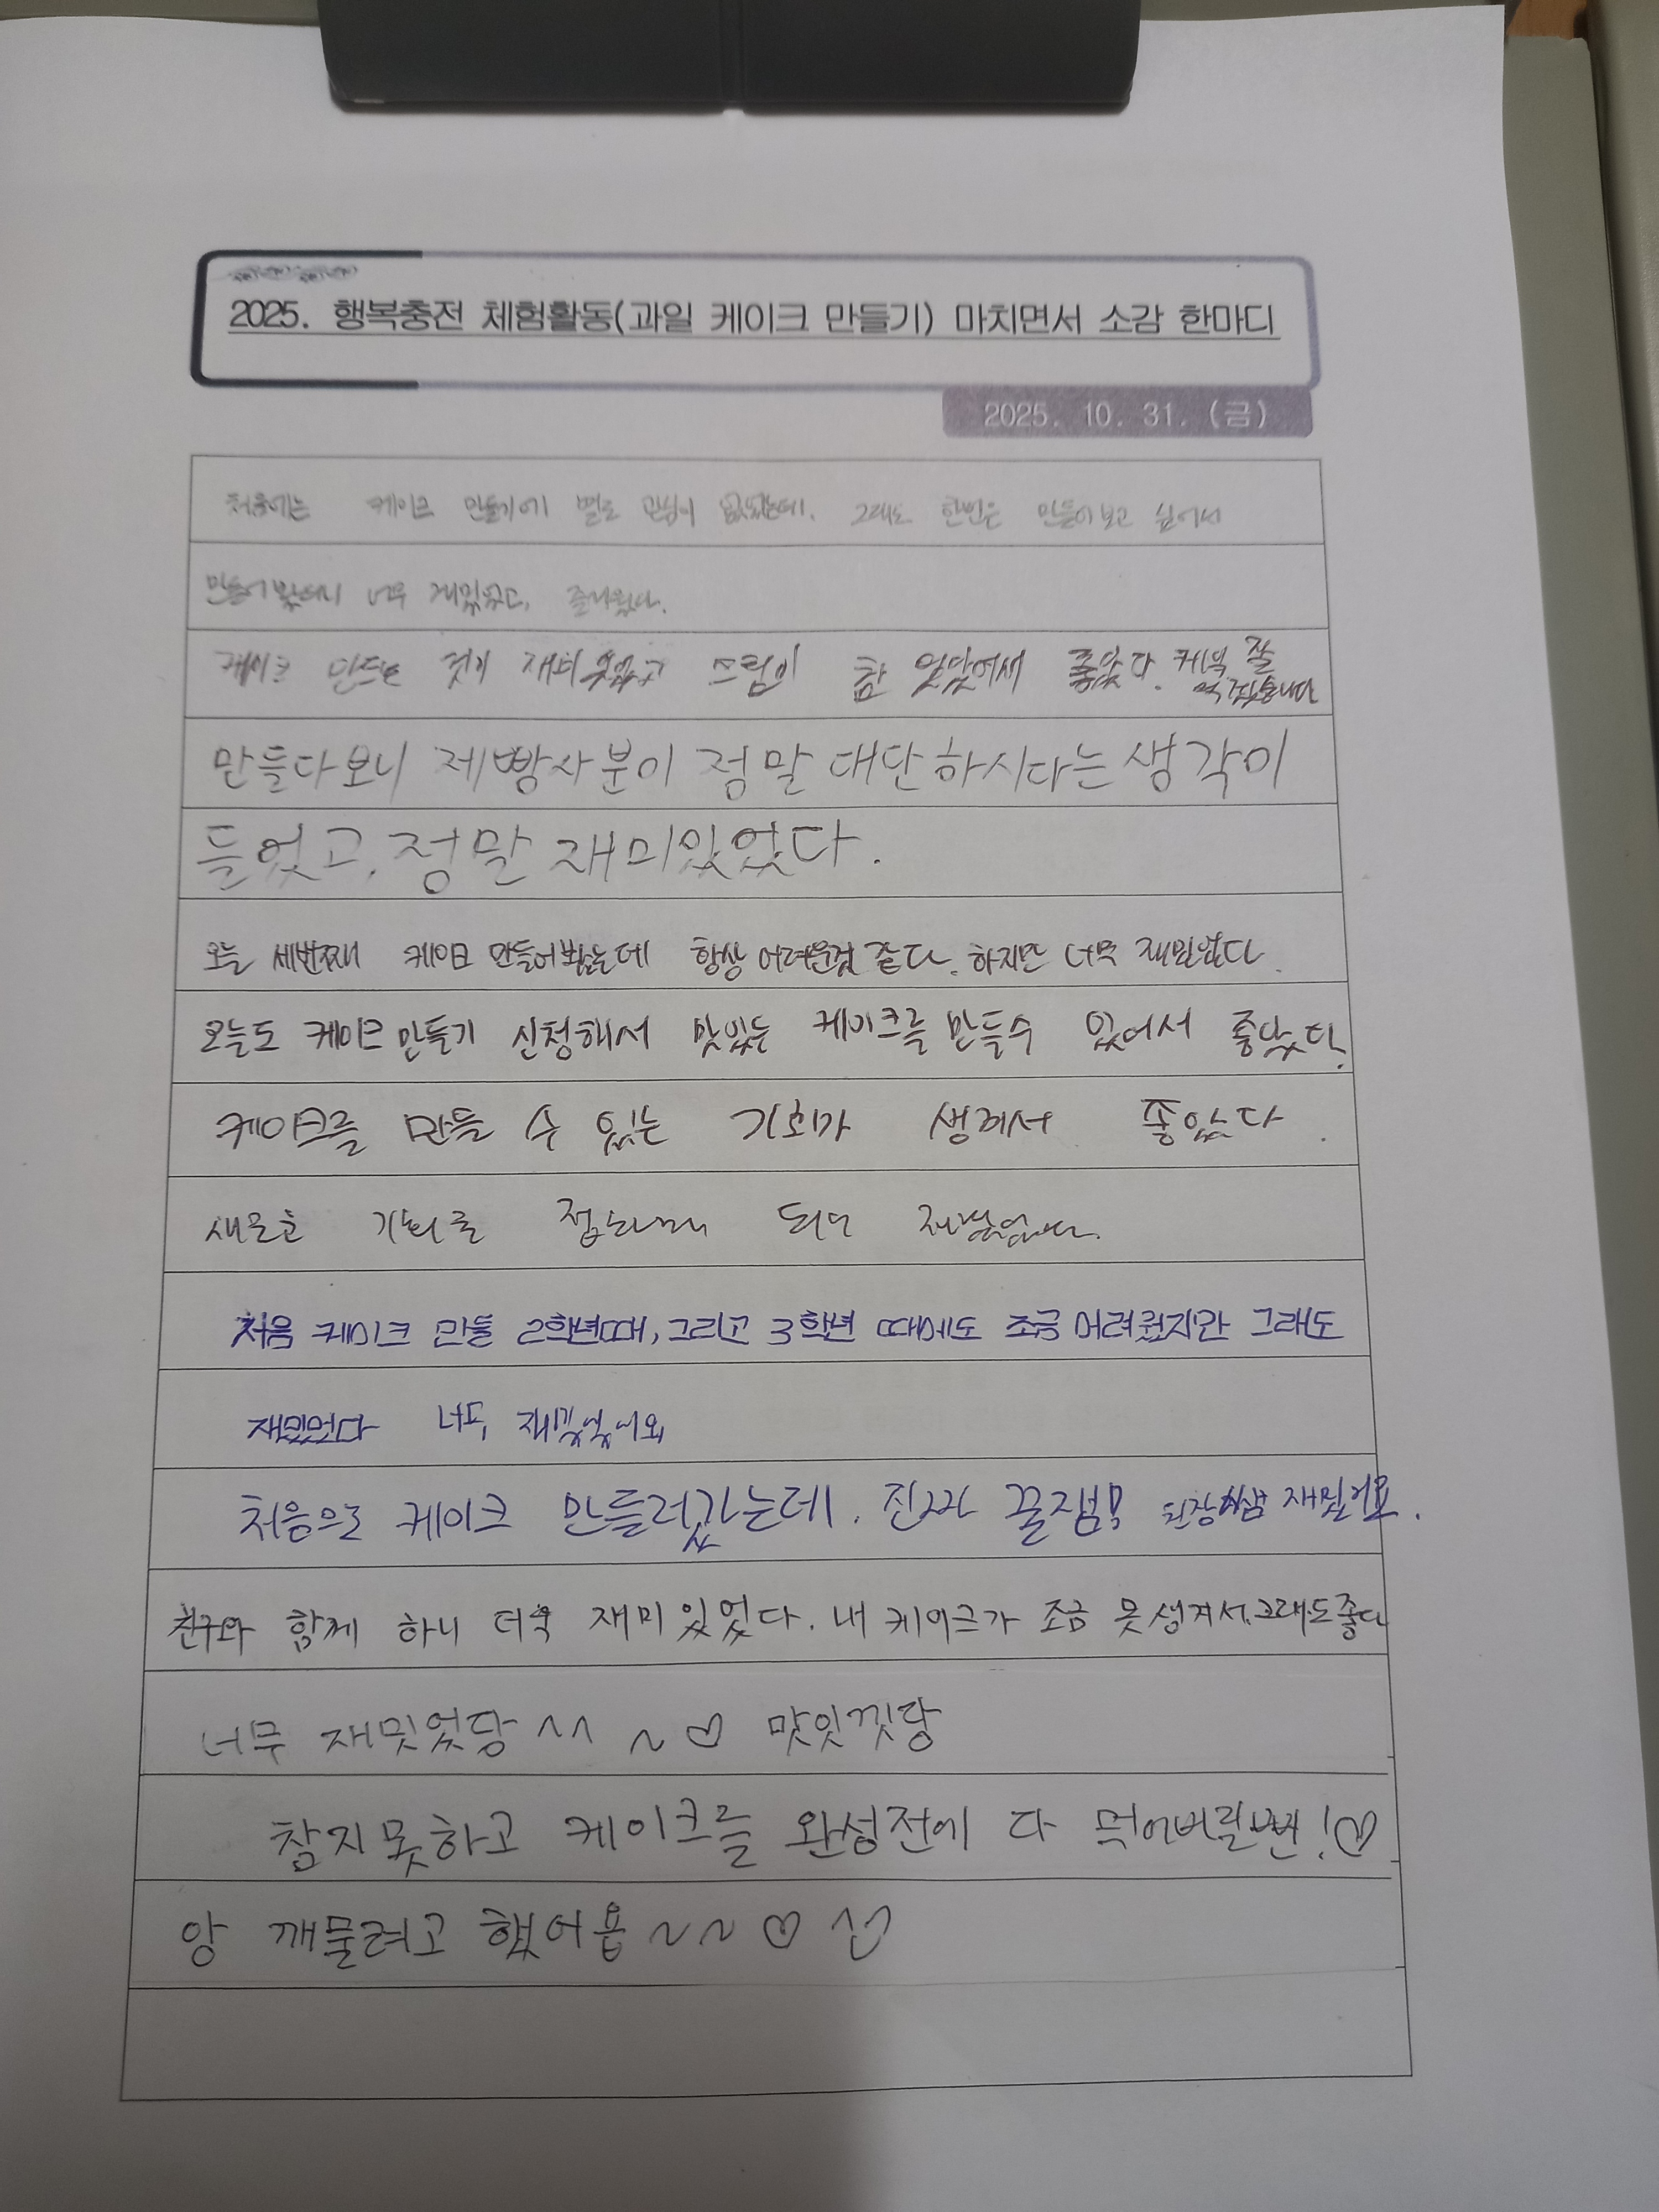 2025. 행복충전 체험활동(과일 케이크 만들기) 마치면서 소감 한마디
2025. 10. 31. (금)
처음에는 케이크 만들기에 별로 관심이 없었는데. 그래도 한번은 만들어보고 싶어서
만들어 봤더니 너무 재밌었고, 즐거웠다.
케이크 만드는 것이 재미있었고 참 좋았다. 잘 먹겠습니다
만들다보니 제빵사분이 정말 대단하시다는 생각이
들었고, 정말 재미있었다.
오늘 세번째 케이크 만들어봤는데 항상 어려운것 같다. 하지만 너무 재밌었다.
오늘도 케이크 만들기 신청해서 맛있는 케이크를 만들수 있어서 좋았다.
케이크를 만들 수 있는 기회가 생겨서 좋았다.
새로운 기회를
처음 케이크 만들 2학년때, 그리고 3학년 때에도 조금 어려웠지만 그래도
재밌었다 너무 재밌었어요
처음으로 케이크 만들러갔는데. 진짜 꿀잼! 재밌어요.
친구와 함께 하니 더욱 재미있었다. 내 케이크가 조금 못생겨서. 그래도 좋다
너무 재밋었당 ^^ ~♡ 맛잇낏당
참지못하고 케이크를 완성전에 다 먹어버릴뻔!♡
앙 깨물려고 했어욥 ~~♡